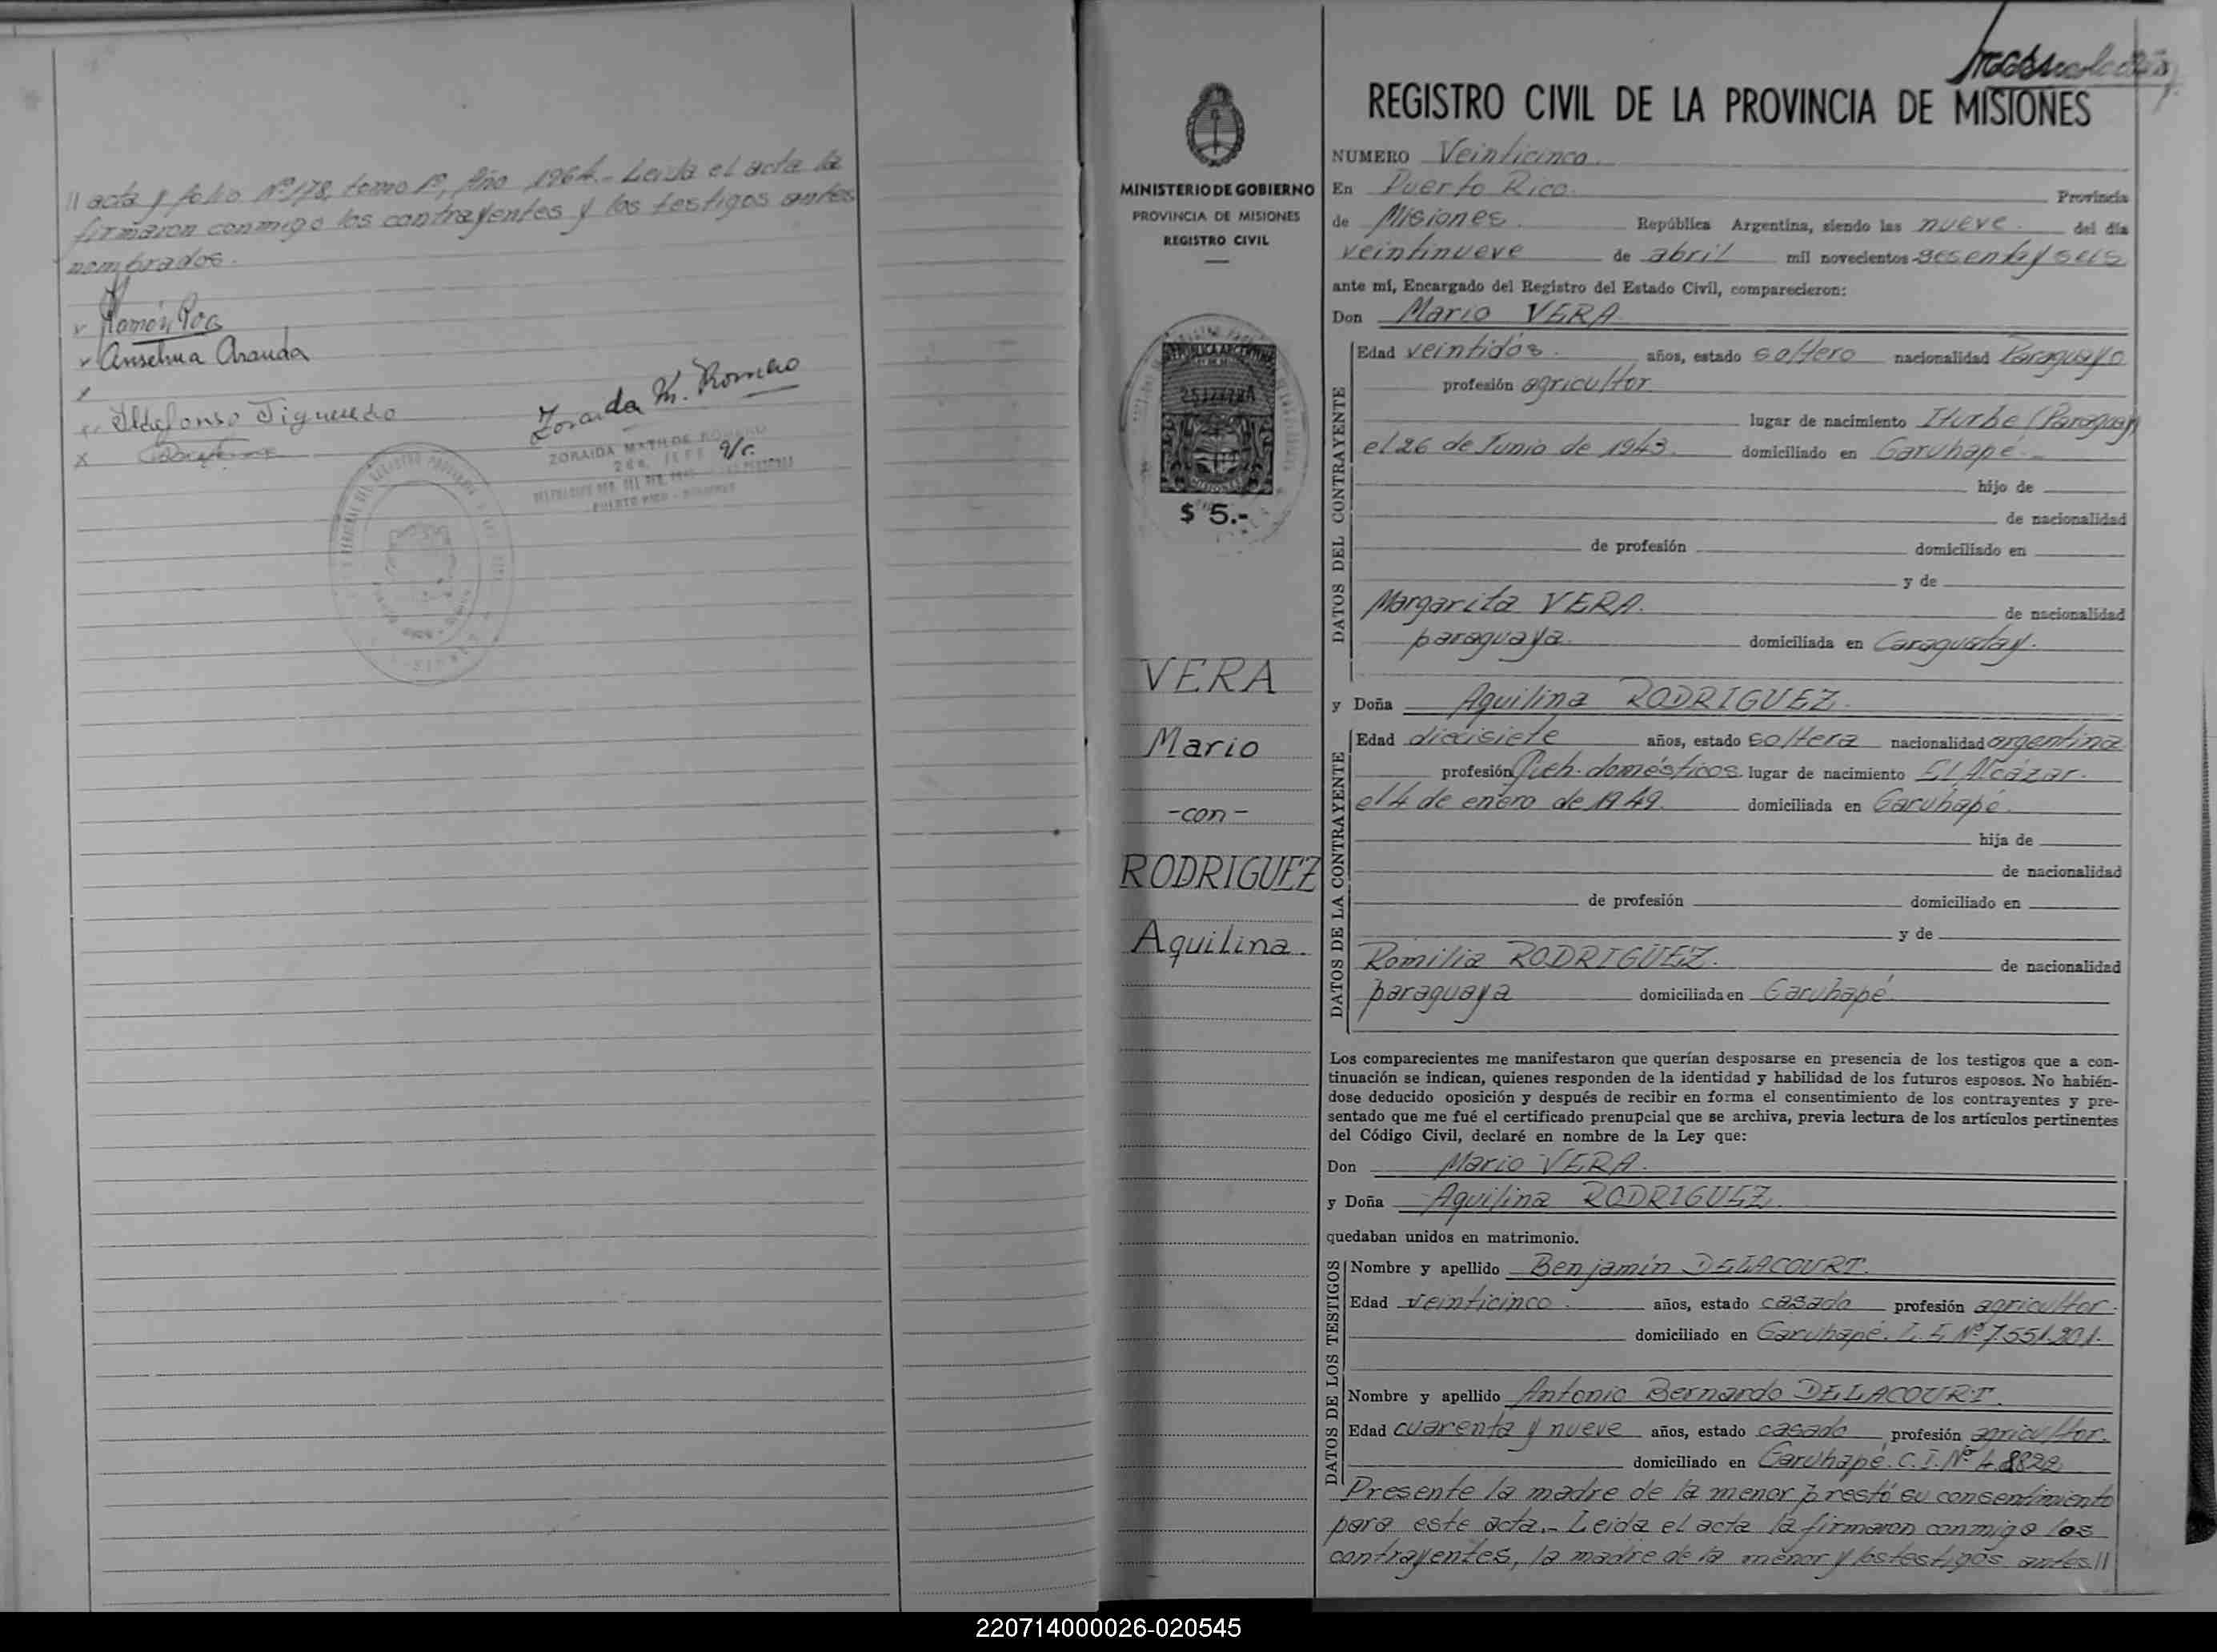 // acta y folio Nº 178, tomo 1º, Año 1964.- Leída el acta la
firmaron conmigo los contrayentes y los testigos antes
nombrados.
Ramón Roa
Anselma Aranda
Ildefonso Figueredo
Zoraida M. Romero
ZORAIDA MATILDE ROMERO
a/c.
PUERTO RICO - MISIONES
MINISTERIO DE GOBIERNO
PROVINCIA DE MISIONES
REGISTRO CIVIL
REPUBLICA ARGENTINA
MISIONES
$ 5.-
VERA
Mario
-con-
RODRIGUEZ
Aquilina.
REGISTRO CIVIL DE LA PROVINCIA DE MISIONES
NUMERO Veinticinco.
En Puerto Rico. Provincia
de Misiones. República Argentina, siendo las nueve. del día
veintinueve de abril mil novecientos sesenta y seis
ante mí, Encargado del Registro del Estado Civil, comparecieron:
Don Mario VERA
DATOS DEL CONTRAYENTE
Edad veintidós. años, estado soltero nacionalidad Paraguayo
profesión agricultor
lugar de nacimiento Iturbe (Paraguay)
el 26 de Junio de 1943. domiciliado en Garuhapé.
hijo de
de nacionalidad
de profesión domiciliado en
y de
Margarita VERA. de nacionalidad
paraguaya. domiciliada en Caraguatay.
y Doña Aquilina RODRIGUEZ.
DATOS DE LA CONTRAYENTE
Edad diecisiete años, estado soltera nacionalidad argentina
profesión Queh. domésticos. lugar de nacimiento El Alcázar.
el 4 de enero de 1949. domiciliada en Garuhapé.
hija de
de nacionalidad
de profesión domiciliado en
y de
Romilia RODRIGUEZ. de nacionalidad
paraguaya domiciliada en Garuhapé
Los comparecientes me manifestaron que querían desposarse en presencia de los testigos que a con-
tinuación se indican, quienes responden de la identidad y habilidad de los futuros esposos. No habién-
dose deducido oposición y después de recibir en forma el consentimiento de los contrayentes y pre-
sentado que me fué el certificado prenupcial que se archiva, previa lectura de los artículos pertinentes
del Código Civil, declaré en nombre de la Ley que:
Don Mario VERA.
y Doña Aquilina RODRIGUEZ.
quedaban unidos en matrimonio.
DATOS DE LOS TESTIGOS
Nombre y apellido Benjamín DELACOURT.
Edad veinticinco. años, estado casado profesión agricultor.
domiciliado en Garuhapé. L. E. Nº 7.551.201.
Nombre y apellido Antonio Bernardo DELACOURT.
Edad cuarenta y nueve años, estado casado profesión agricultor.
domiciliado en Garuhapé. C. I. Nº 48822
Presente la madre de la menor prestó su consentimiento
para este acta.- Leída el acta la firmaron conmigo los
contrayentes, la madre de la menor y los testigos antes//
220714000026-020545